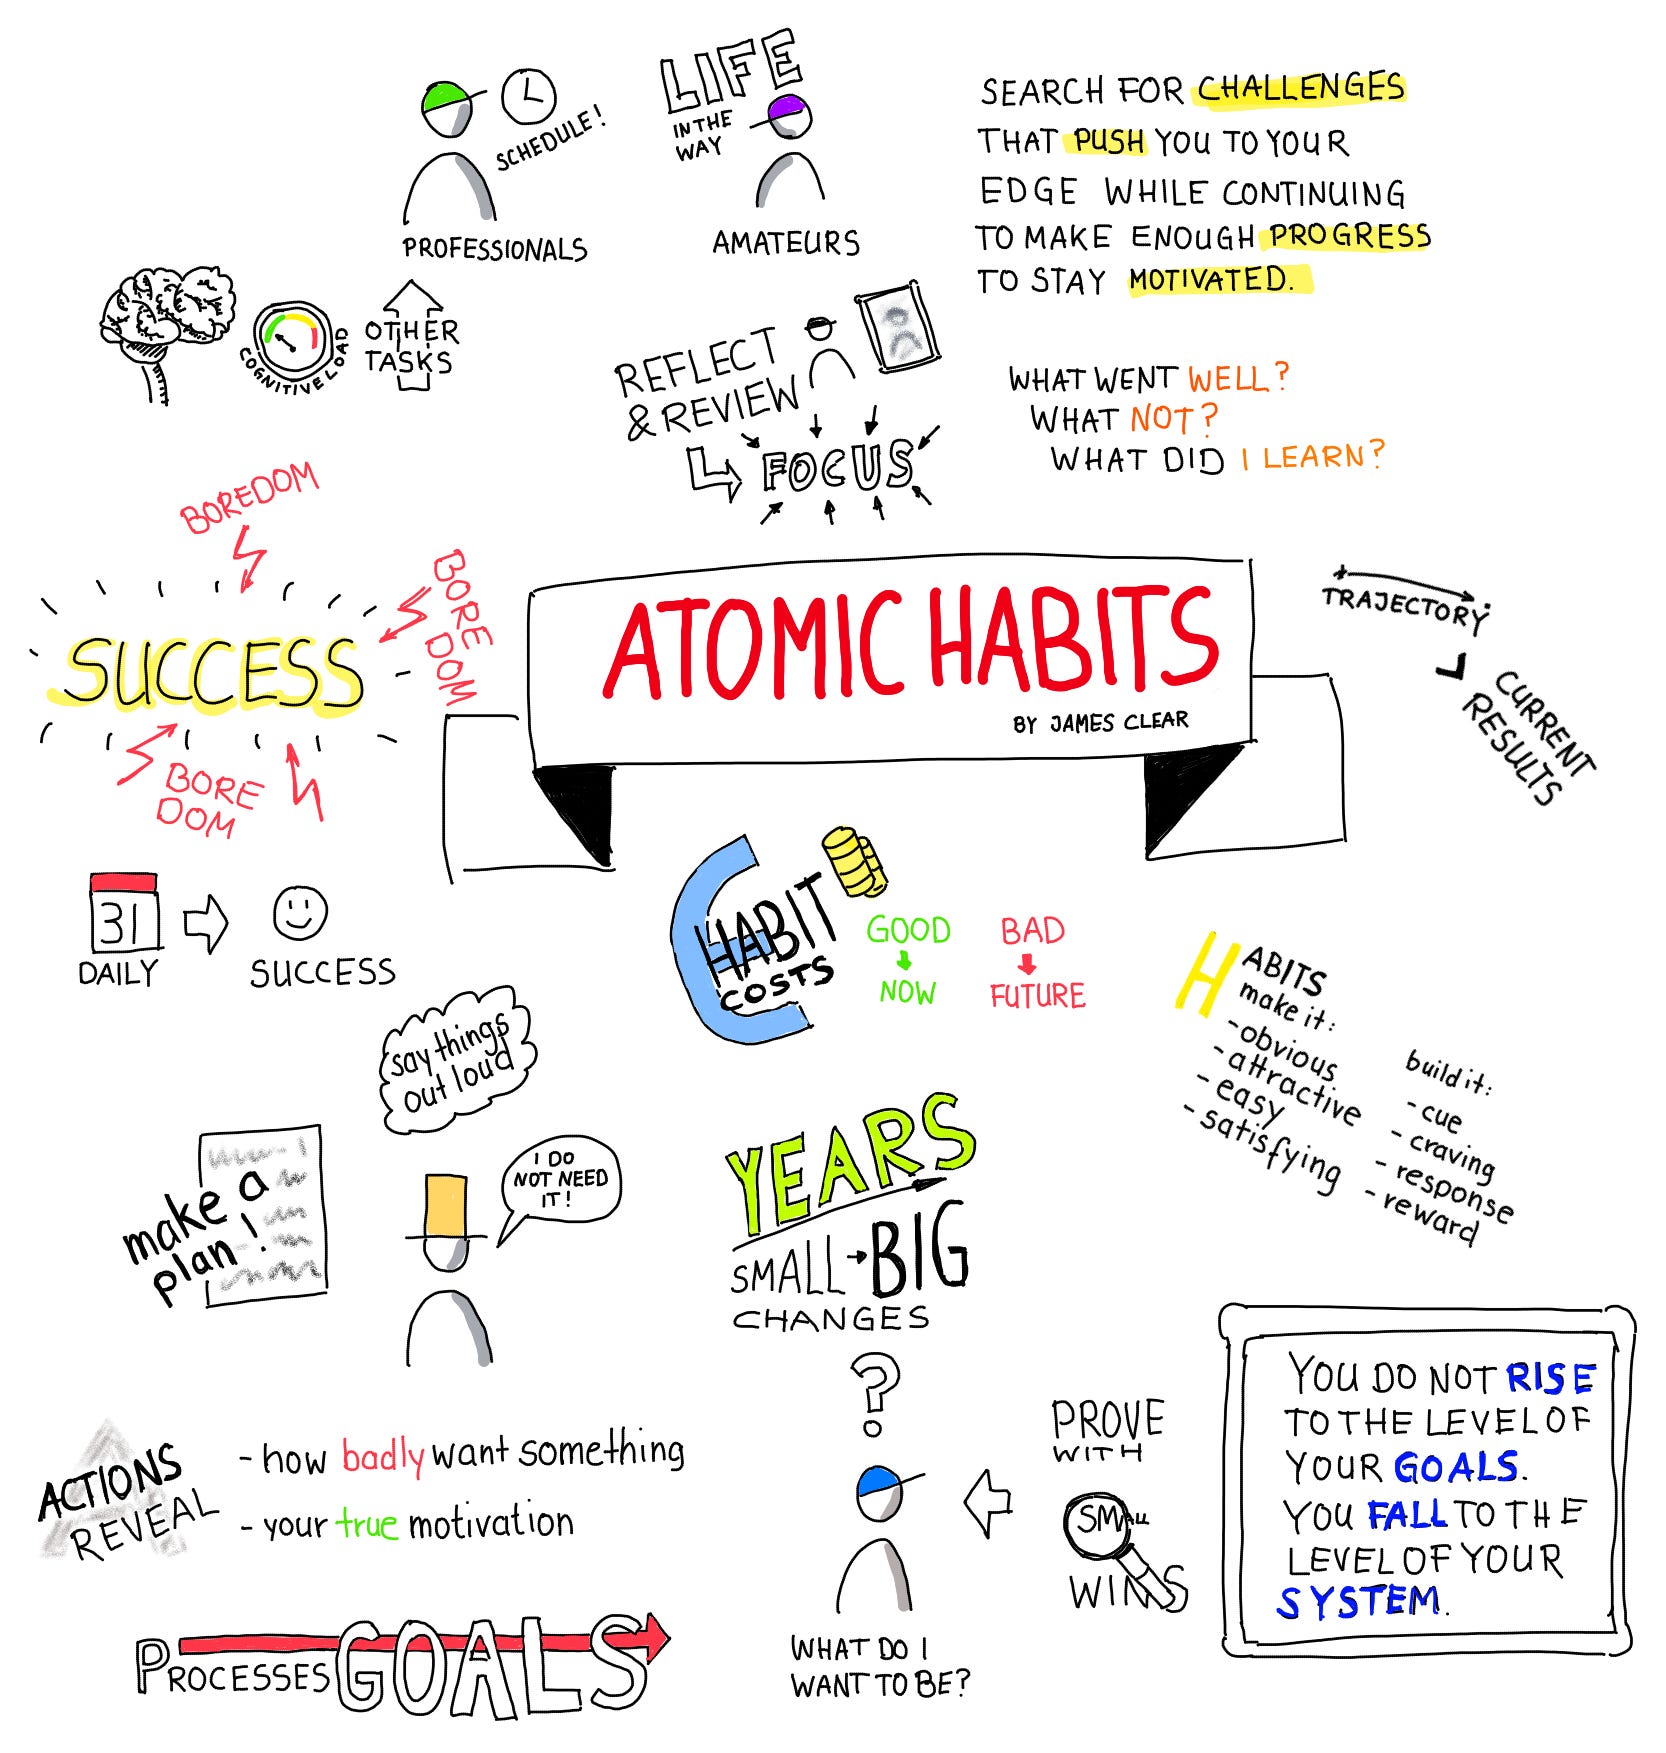 SCHEDULE!
PROFESSIONALS
LIFE
IN THE
WAY
AMATEURS
SEARCH FOR CHALLENGES
THAT PUSH YOU TO YOUR
EDGE WHILE CONTINUING
TO MAKE ENOUGH PROGRESS
TO STAY MOTIVATED.
COGNITIVE LOAD
OTHER
TASKS
REFLECT
& REVIEW
FOCUS
WHAT WENT WELL?
WHAT NOT?
WHAT DID I LEARN?
BOREDOM
BORE
DOM
SUCCESS
BORE
DOM
ATOMIC HABITS
BY JAMES CLEAR
TRAJECTORY
CURRENT
RESULTS
31
DAILY
SUCCESS
HABIT
COSTS
GOOD
NOW
BAD
FUTURE
HABITS
make it:
-obvious
-attractive
-easy
-satisfying
build it:
-cue
-craving
-response
-reward
say things
out loud
make a
plan!
I DO
NOT NEED
IT!
YEARS
SMALL BIG
CHANGES
ACTIONS
REVEAL
- how badly want something
- your true motivation
PROCESSES GOALS
?
WHAT DO I
WANT TO BE?
PROVE
WITH
SMALL
WINS
YOU DO NOT RISE
TO THE LEVEL OF
YOUR GOALS.
YOU FALL TO THE
LEVEL OF YOUR
SYSTEM.